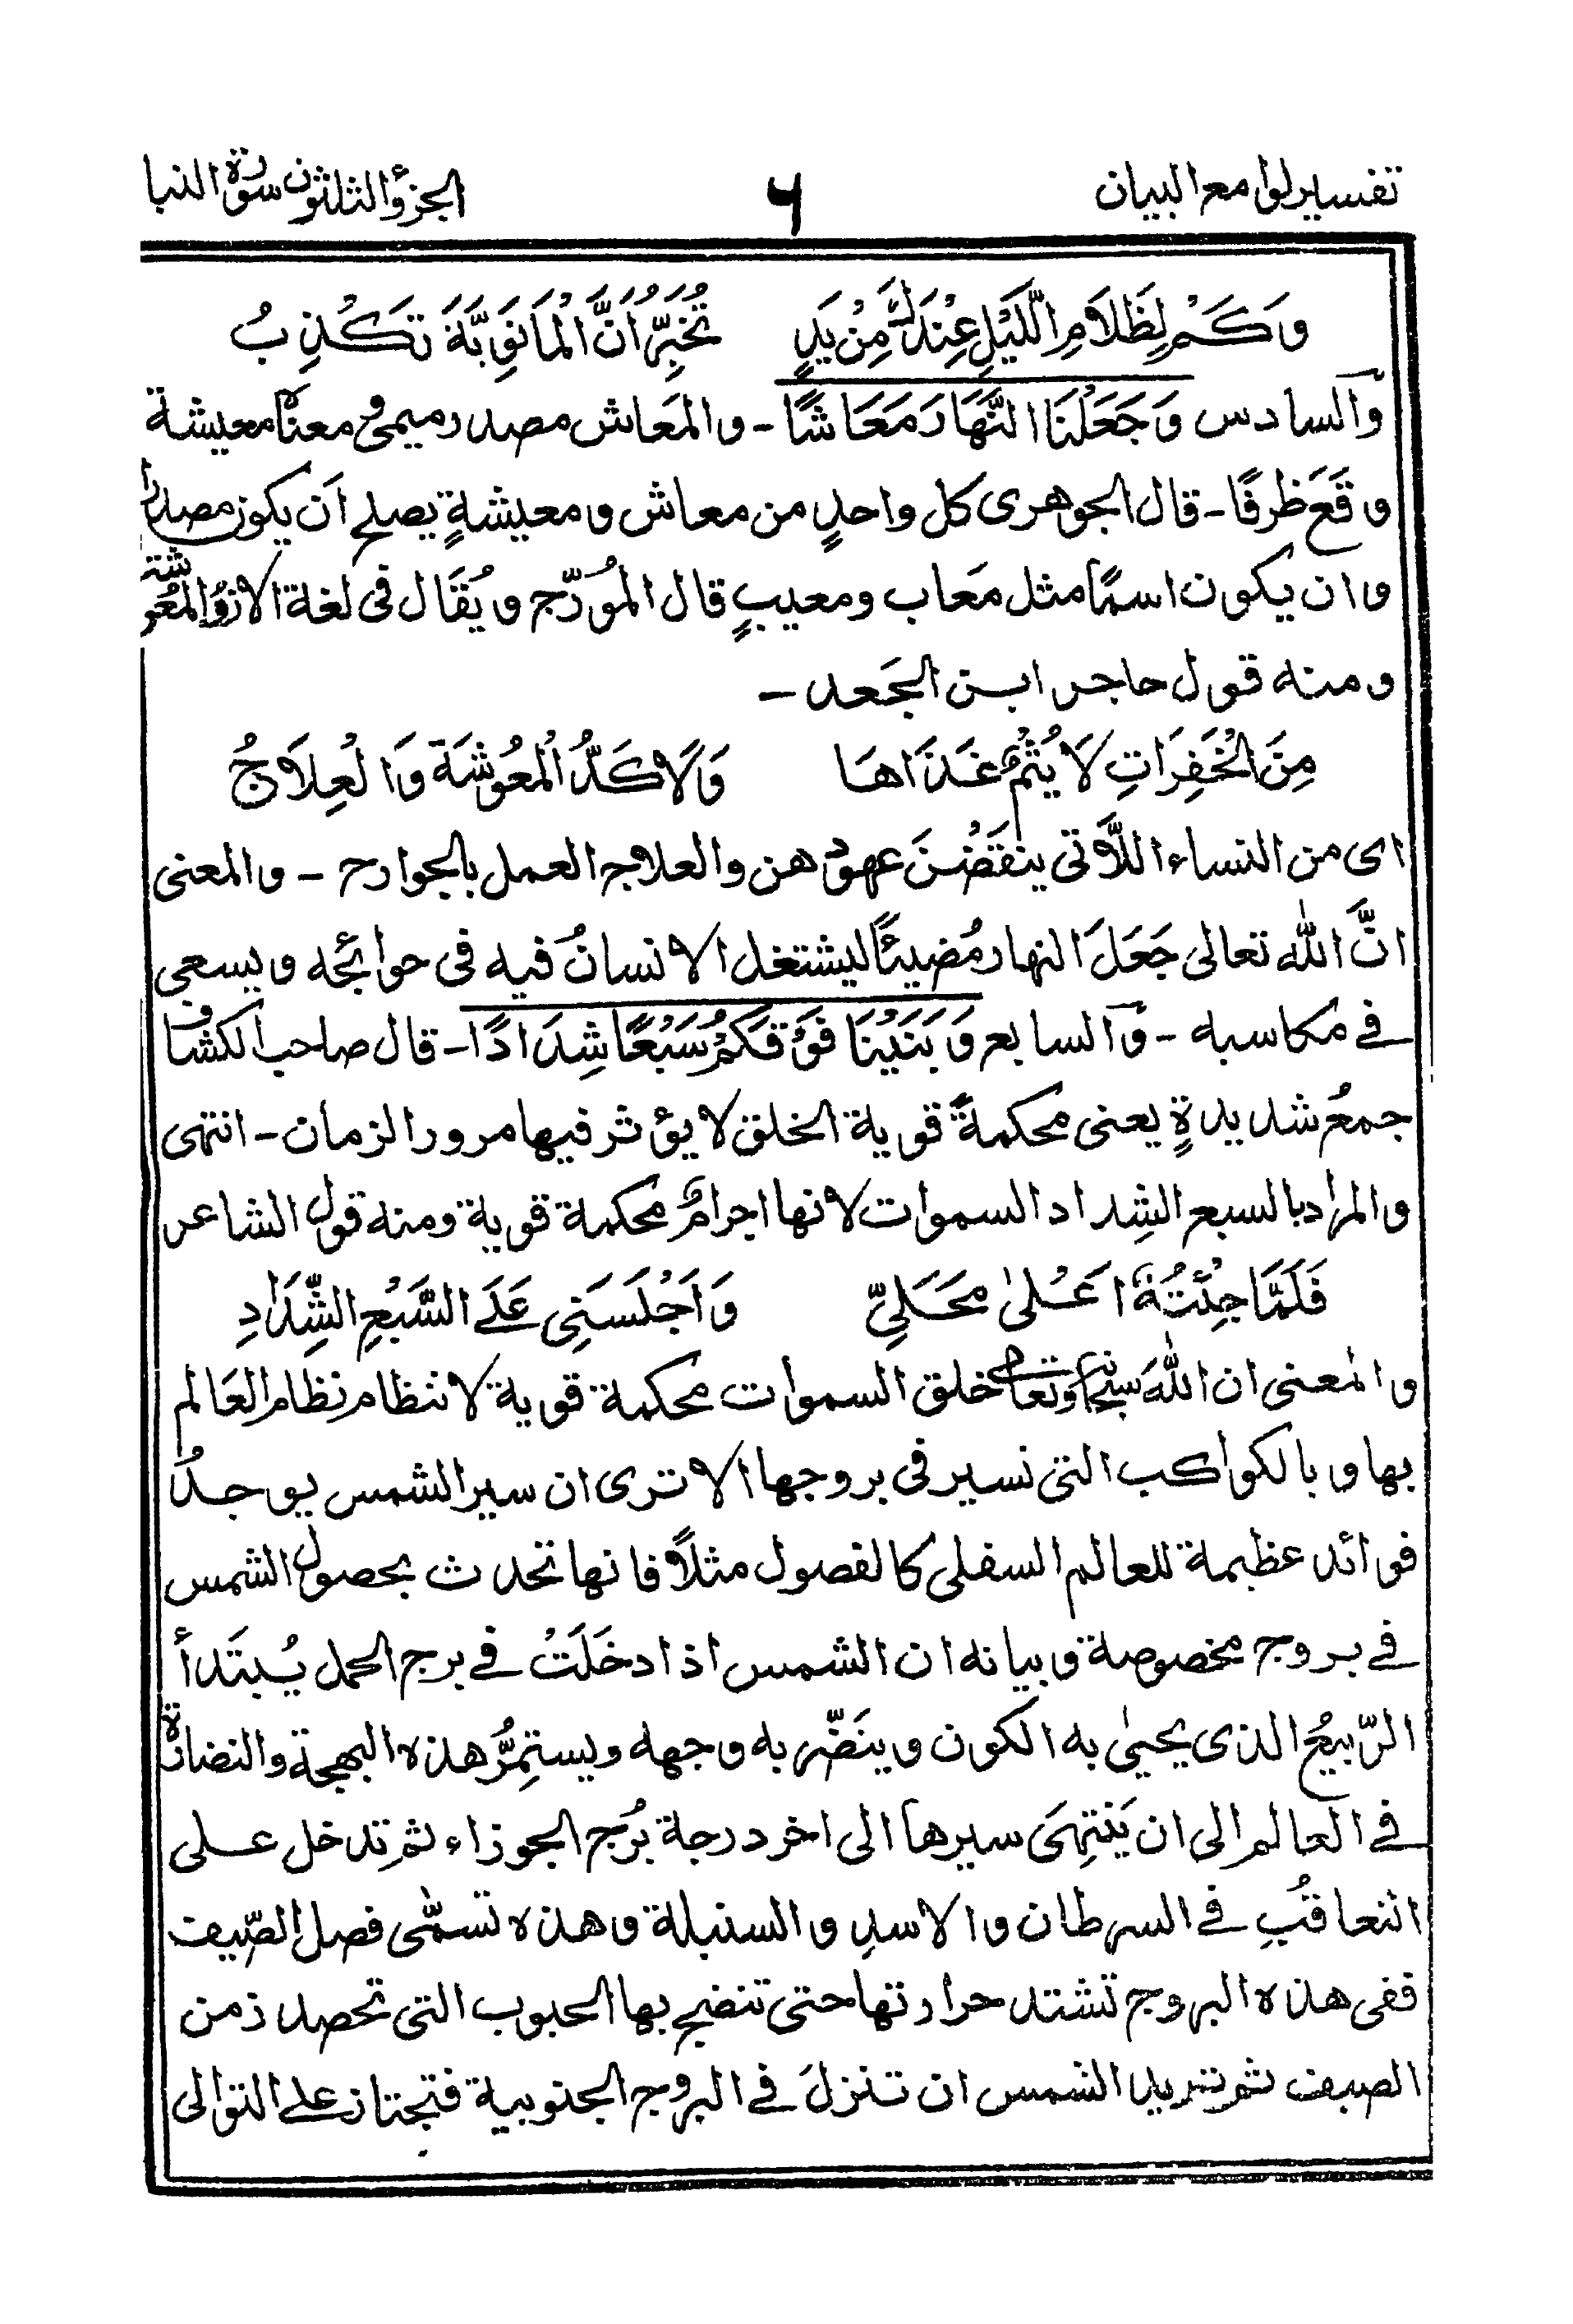 تفسير لوامع البيان ٦ الجزؤ الثلثون سورة النبا
وَكَمْ لِظَلَامِ الَّليْلِ عِنْدَكَ مِنْ يَدٍ تُخَبِّرُ اَنَّ الْمَانَوِيَّةَ تَكْذِبُ
وآلسادس وَجَعَلْنَا النَّهَارَ مَعَاشًا - والمَعاش مصدر ميمى وفى معناه معيشة
وقَعَ ظرفًا - قال الجوهرى كل واحدٍ من معاش ومعيشةٍ يصلح اَن يكون مصدرا
وان يكون اسمًا مثل مَعاب ومعيبٍ قال المُورّج ويُقَال فى لغة الازد المُعوشة
ومنه قول حاجر ابن الجَعد -
مِنَ الْخَفِرَاتِ لَا يُتْمٌ غَذَاهَا وَلَا كَدُّ الْمعُوْشَةِ وَالْعِلَاجُ
اى من النساء اللَّاتى ينقَضْنَ عهودهن والعلاج العمل بالجوارح - والمعنى
انَّ الله تعالى جَعَلَ النهار مُضيئًا ليشتغل الانسانُ فيه فى حوائجه ويسعى
فى مكاسبه - وآلسابع وَبَنَيْنَا فَوْقَكُمْ سَبْعًا شِدَادًا - قال صاحب الكشاف
جمعُ شديدةٍ يعنى محكمةً قوية الخلق لا يؤثر فيها مرور الزمان - انتهى
والمراد بالسبع الشِداد السموات لانها اجرامٌ محكمة قوية ومنه قول الشاعر
فَلَمَّا جِئْتُهٗ اَعْلىٰ مَحَلِيّ وَاَجْلَسَنِى عَلَى السَّبْعِ الشِّدَادِ
والمعنى ان اللهَ سبحانه وتعالى خلق السموات محكمة قوية لانتظام نظام العَالم
بها وبالكواكب التى تسير فى بروجها الا ترى ان سير الشمس يوجدُ
فوائد عظيمة للعالم السفلى كالفصول مثلًا فانها تحدث بحصول الشمس
فى بروج مخصوصة وبيانه ان الشمس اذا دخَلَتْ فى برج الحمل يُبتَدأ
الرّبيعُ الذى يحيىٰ به الكون وينَضّر به وجهه ويستمِرُّ هذه البهجة والنضارة
فى العالم الى ان يَنتِهىَ سيرها الى اخر درجة بُرج الجوزاء ثم تدخل على
التعاقُبِ فى السرطان والاسدِ والسنبلة وهذه تسمّى فصل الصّيف
ففى هذه البروج تشتد حرارتها حتى تنضج بها الحبوب التى تحصد زمن
الصيف ثم تريد الشمس ان تنزلَ فى البروج الجنوبية فتجتاز على التوالى